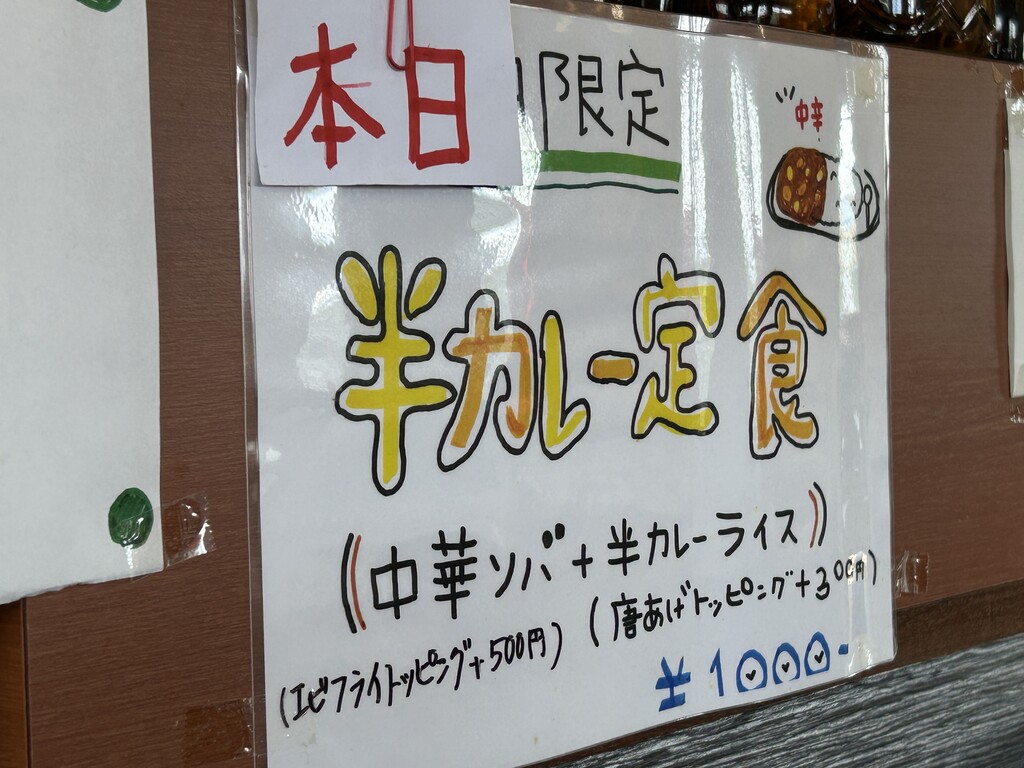 本日限定
中辛
半カレー定食
(中華ソバ+半カレーライス)
(エビフライトッピング+500円)
(唐あげトッピング+300円)
¥1000-